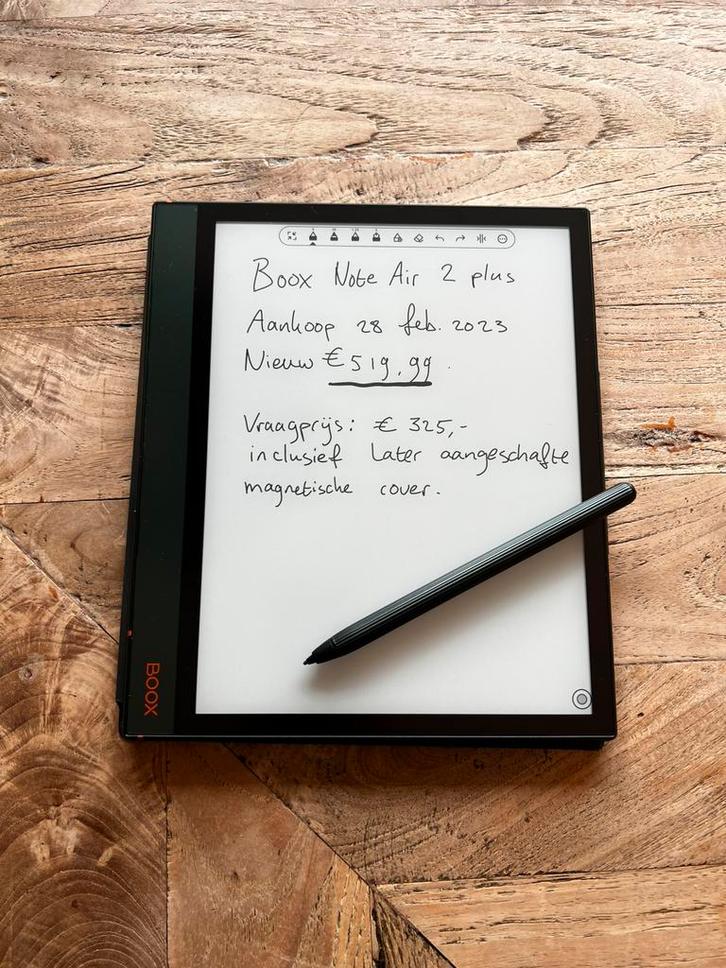 Boox Note Air 2 plus
Aankoop 28 feb. 2023
Nieuw € 519,99.
Vraagprijs: € 325,-
inclusief later aangeschafte
magnetische cover.
BOOX